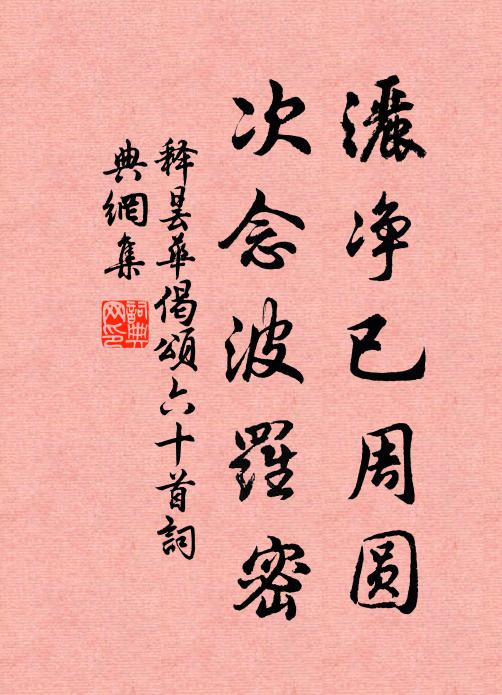 灑净已周圆
次念波羅密
釋曇華偈頌六十首詞
典網集
詞典网印